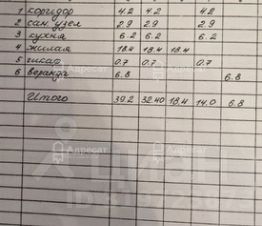 1 коридор 4.2 4.2 4.2
2 сан. узел 2.9 2.9 2.9
3 кухня 6.2 6.2 6.2
4 жилая 18.4 18.4 18.4
5 шкаф 0.7 0.7 0.7
6 веранда 6.8 6.8
Итого 39.2 32.40 18.4 14.0 6.8
Адресат
Адресат
Адресат
Адресат